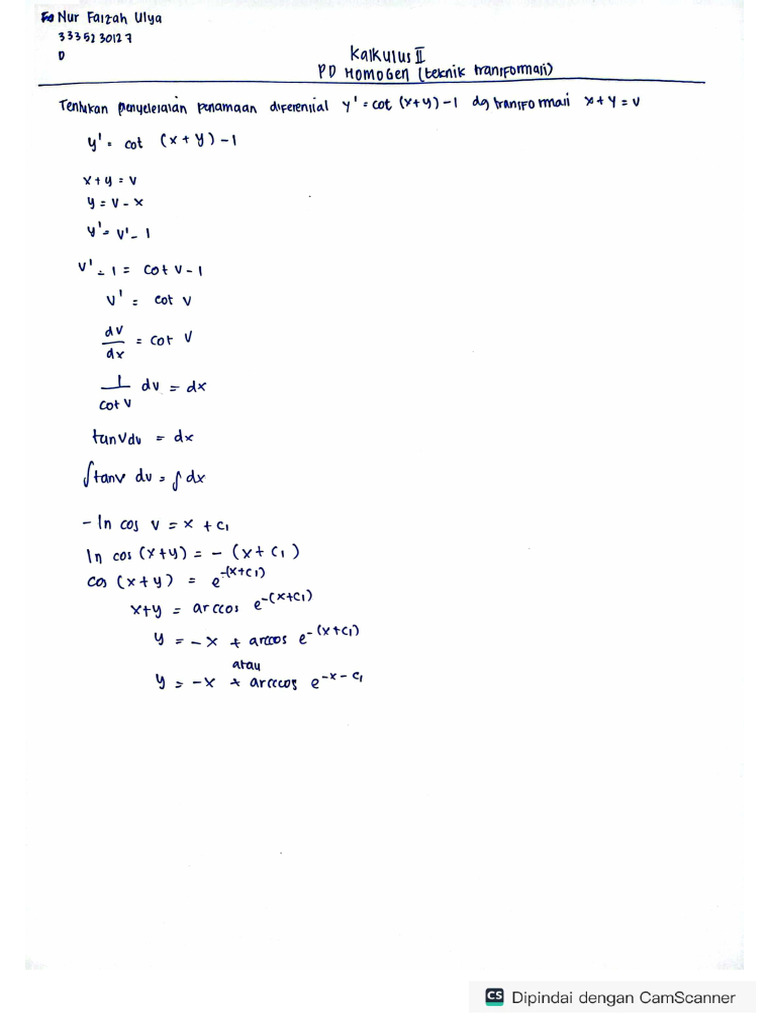 Nur Faizah Ulya
3335230127
D
Kalkulus II
PD Homogen (teknik transformasi)
Tentukan penyelesaian persamaan diferensial y' = cot (x+y) - 1 dg transformasi x + y = v
y' = cot (x + y) - 1
x + y = v
y = v - x
y' = v' - 1
v' - 1 = cot v - 1
v' = cot v
dv/dx = cot v
1/cot v dv = dx
tan v dv = dx
∫tan v dv = ∫dx
- ln cos v = x + c₁
ln cos (x+y) = - (x + c₁)
cos (x+y) = e^-(x+c₁)
x+y = arccos e^-(x+c₁)
y = -x + arccos e^-(x+c₁)
atau
y = -x + arccos e^-x-c₁
CS Dipindai dengan CamScanner